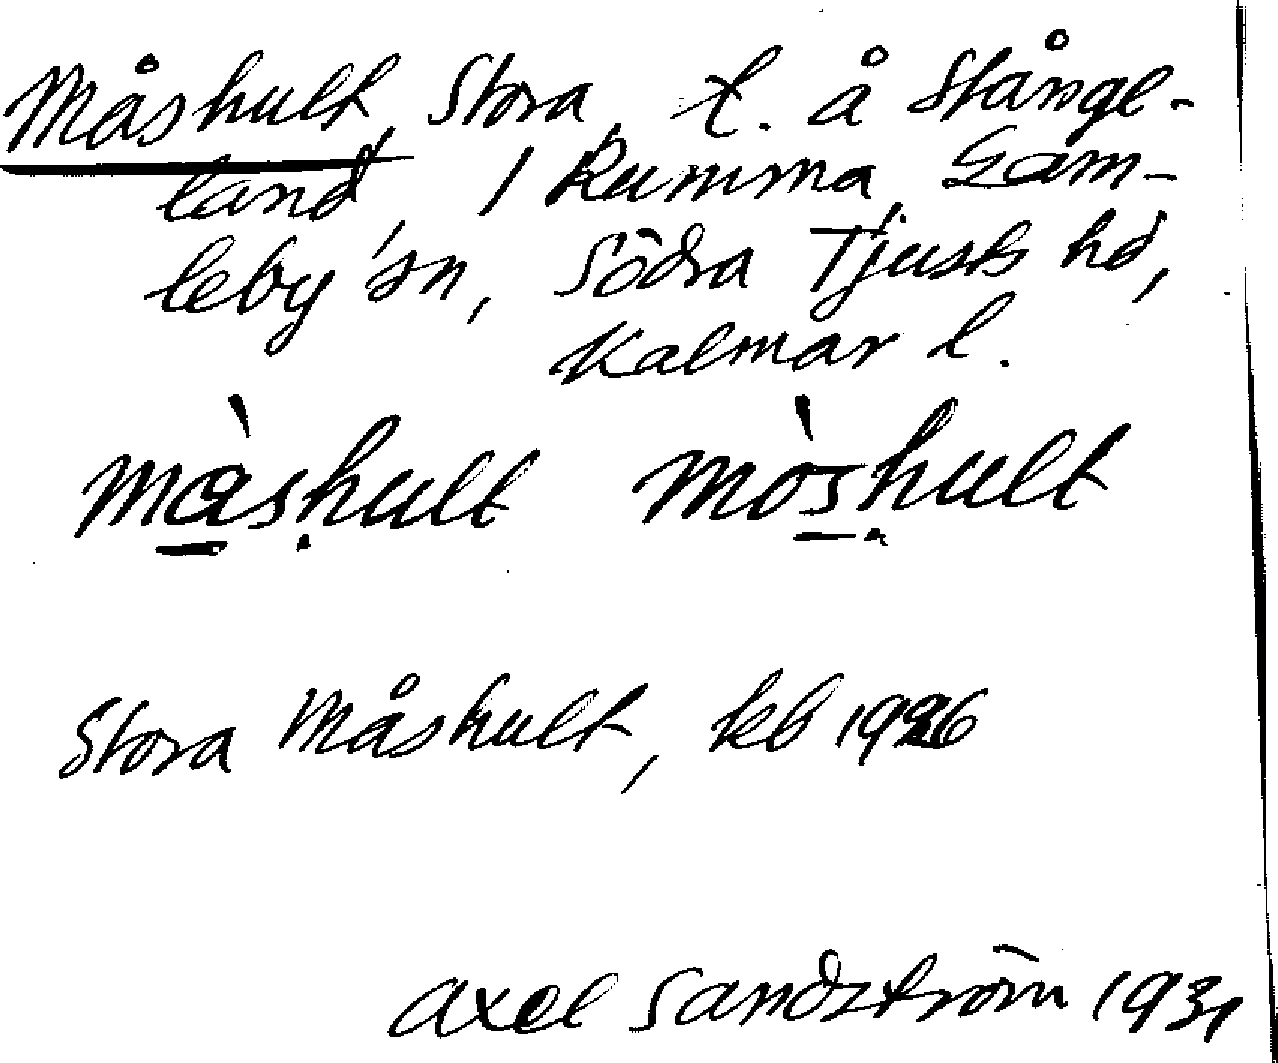 Måshult, Stora, t. å Stånge-
land, / Rumma, Gam-
leby sn, Södra Tjusts hd,
Kalmar l.
màshult mòshult
Stora Måshult, kb 1926
Axel Sandström 1931